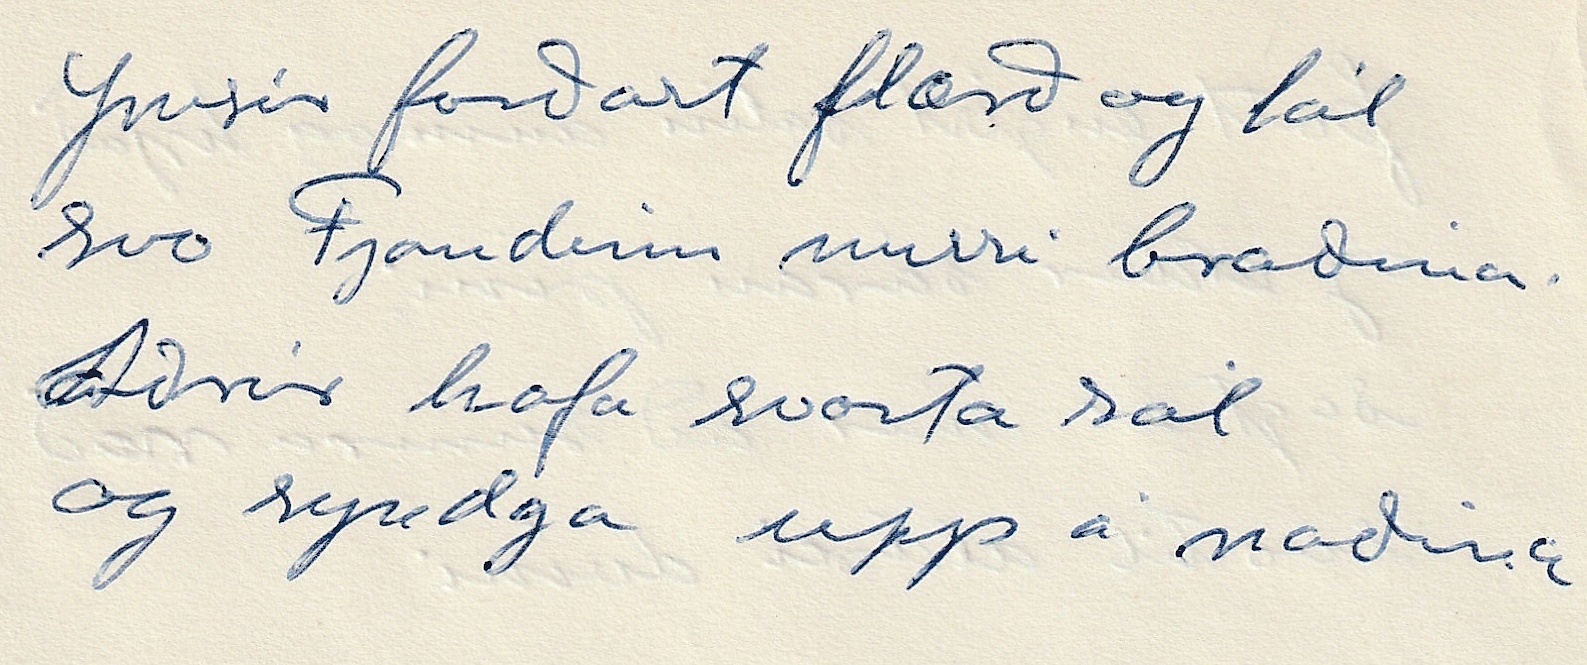 Ýmsir forðast flærð og tál
svo Fjandinn missi bráðina.
Aðrir hafa svarta sál
og syndga upp á náðina